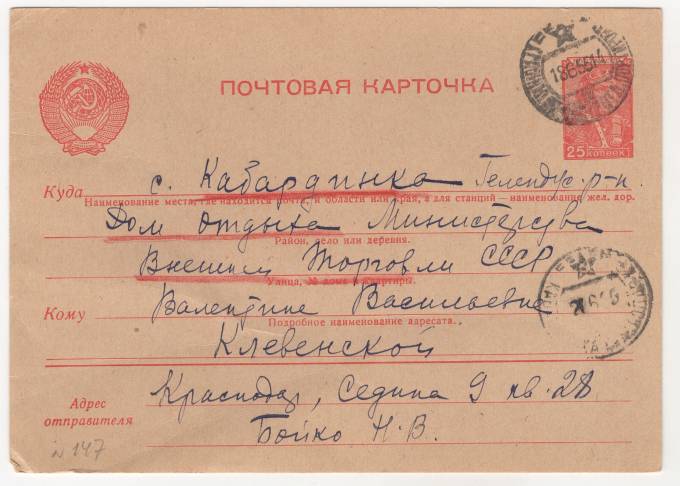 ПОЧТОВАЯ КАРТОЧКА
25 КОПЕЕК
Куда с. Кабардинка Геленд. р-н.
Наименование места, где находится почта, и области или края, а для станций — наименование жел. дор.
Дом отдыха Министерства
Район, село или деревня.
Внешней Торговли СССР
Улица, № дома и квартиры.
Кому Валентине Васильевне
Подробное наименование адресата.
Клевенской
Адрес
отправителя
Краснодар, Седина 9 кв. 28
Бойко Н. В.
№ 147